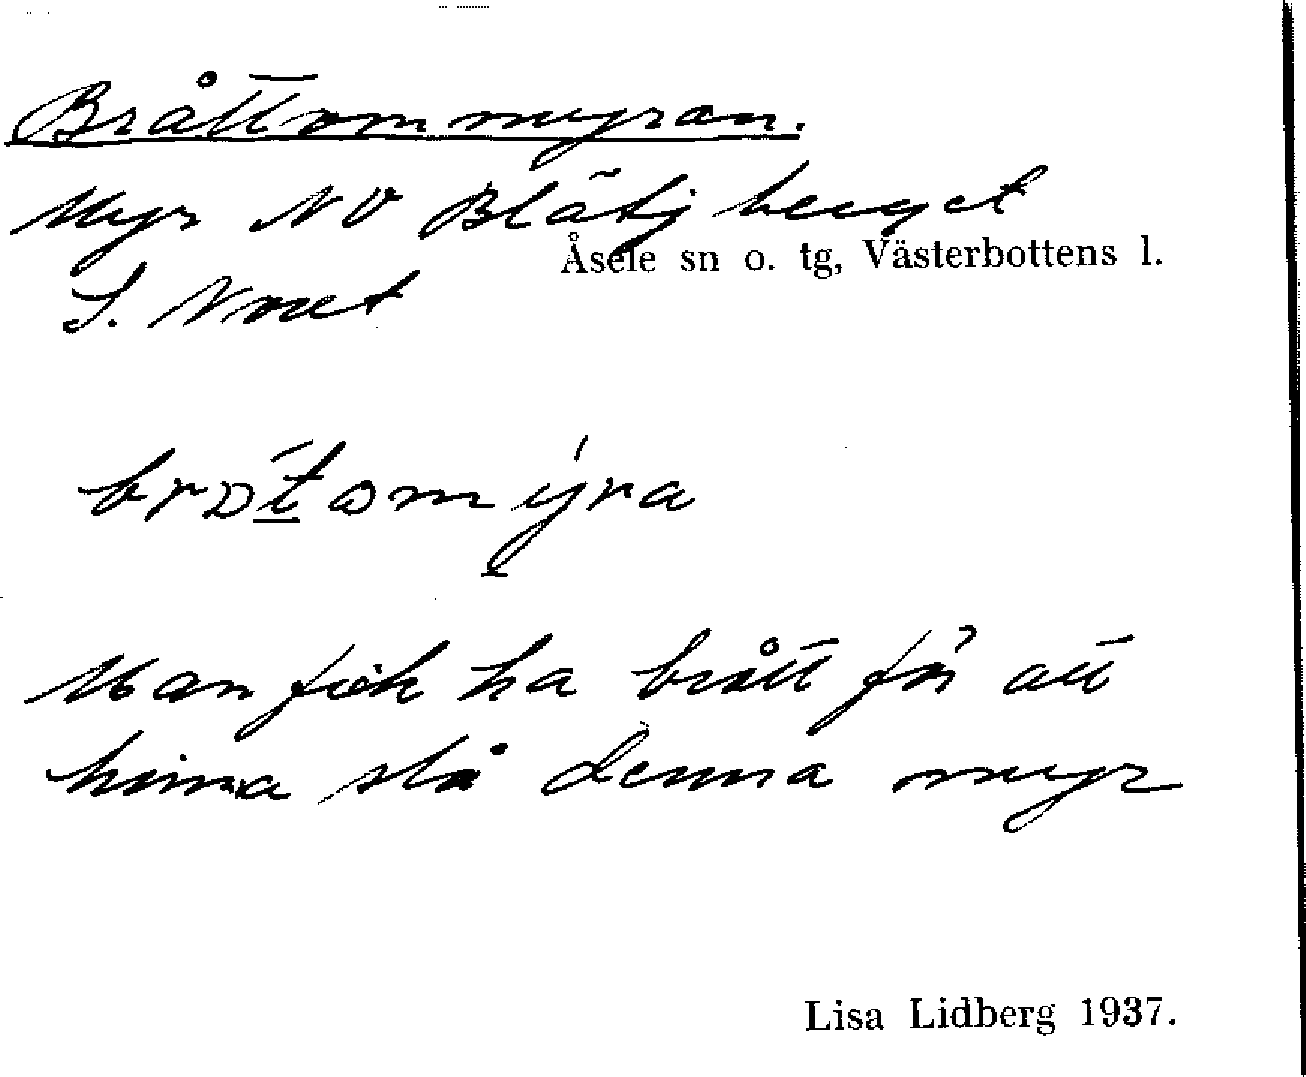 Bråttommyran.
Myr NV Blätjberget
Åsele sn o. tg, Västerbottens l.
S. Noret
brɔt̲omýra
Man fick ha brått för att
hinna slå denna myr
Lisa Lidberg 1937.